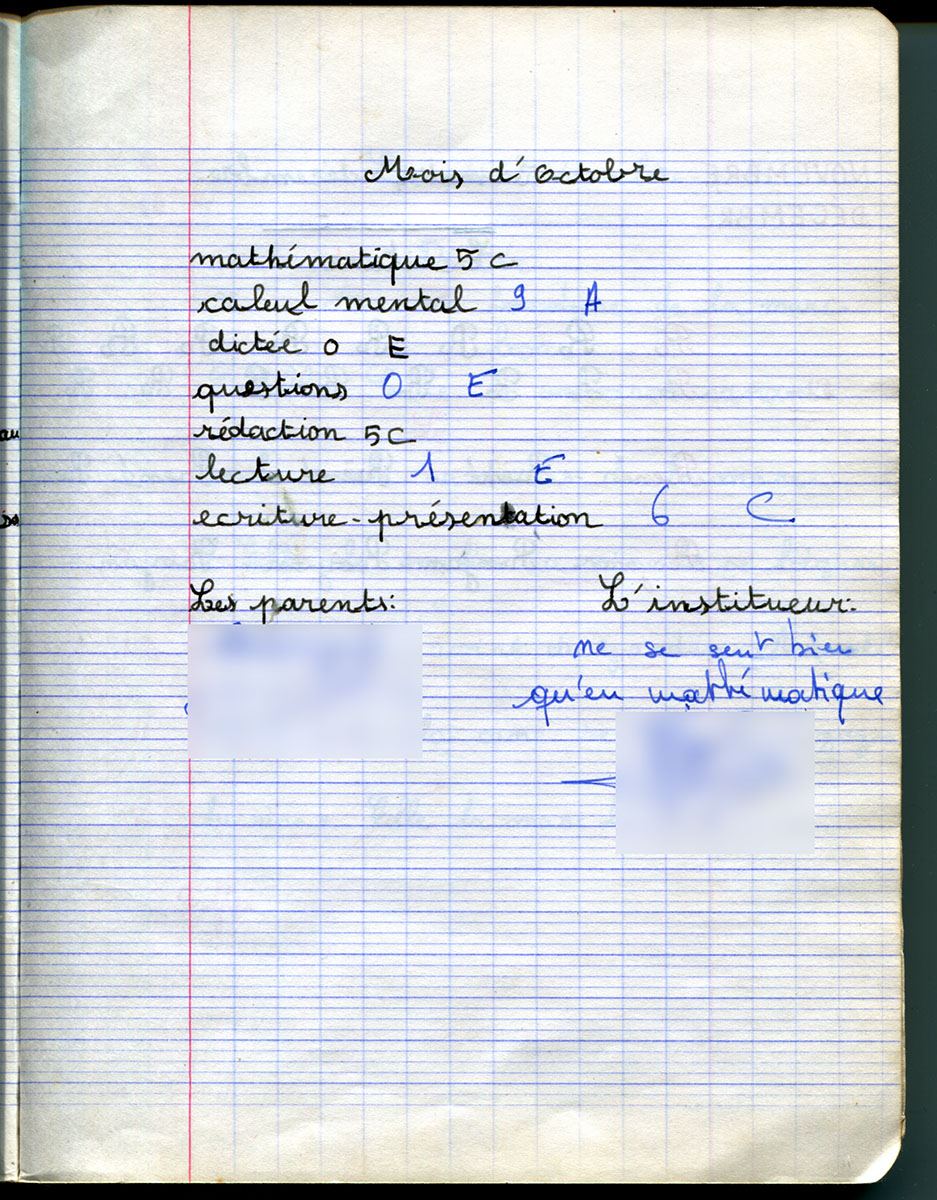 Mois d'Octobre
mathématique 5 C
calcul mental 9 A
dictée 0 E
questions 0 E
rédaction 5 C
lecture 1 E
ecriture-présentation 6 C
Les parents: L'institueur:
ne se sent bien
qu'en mathématique